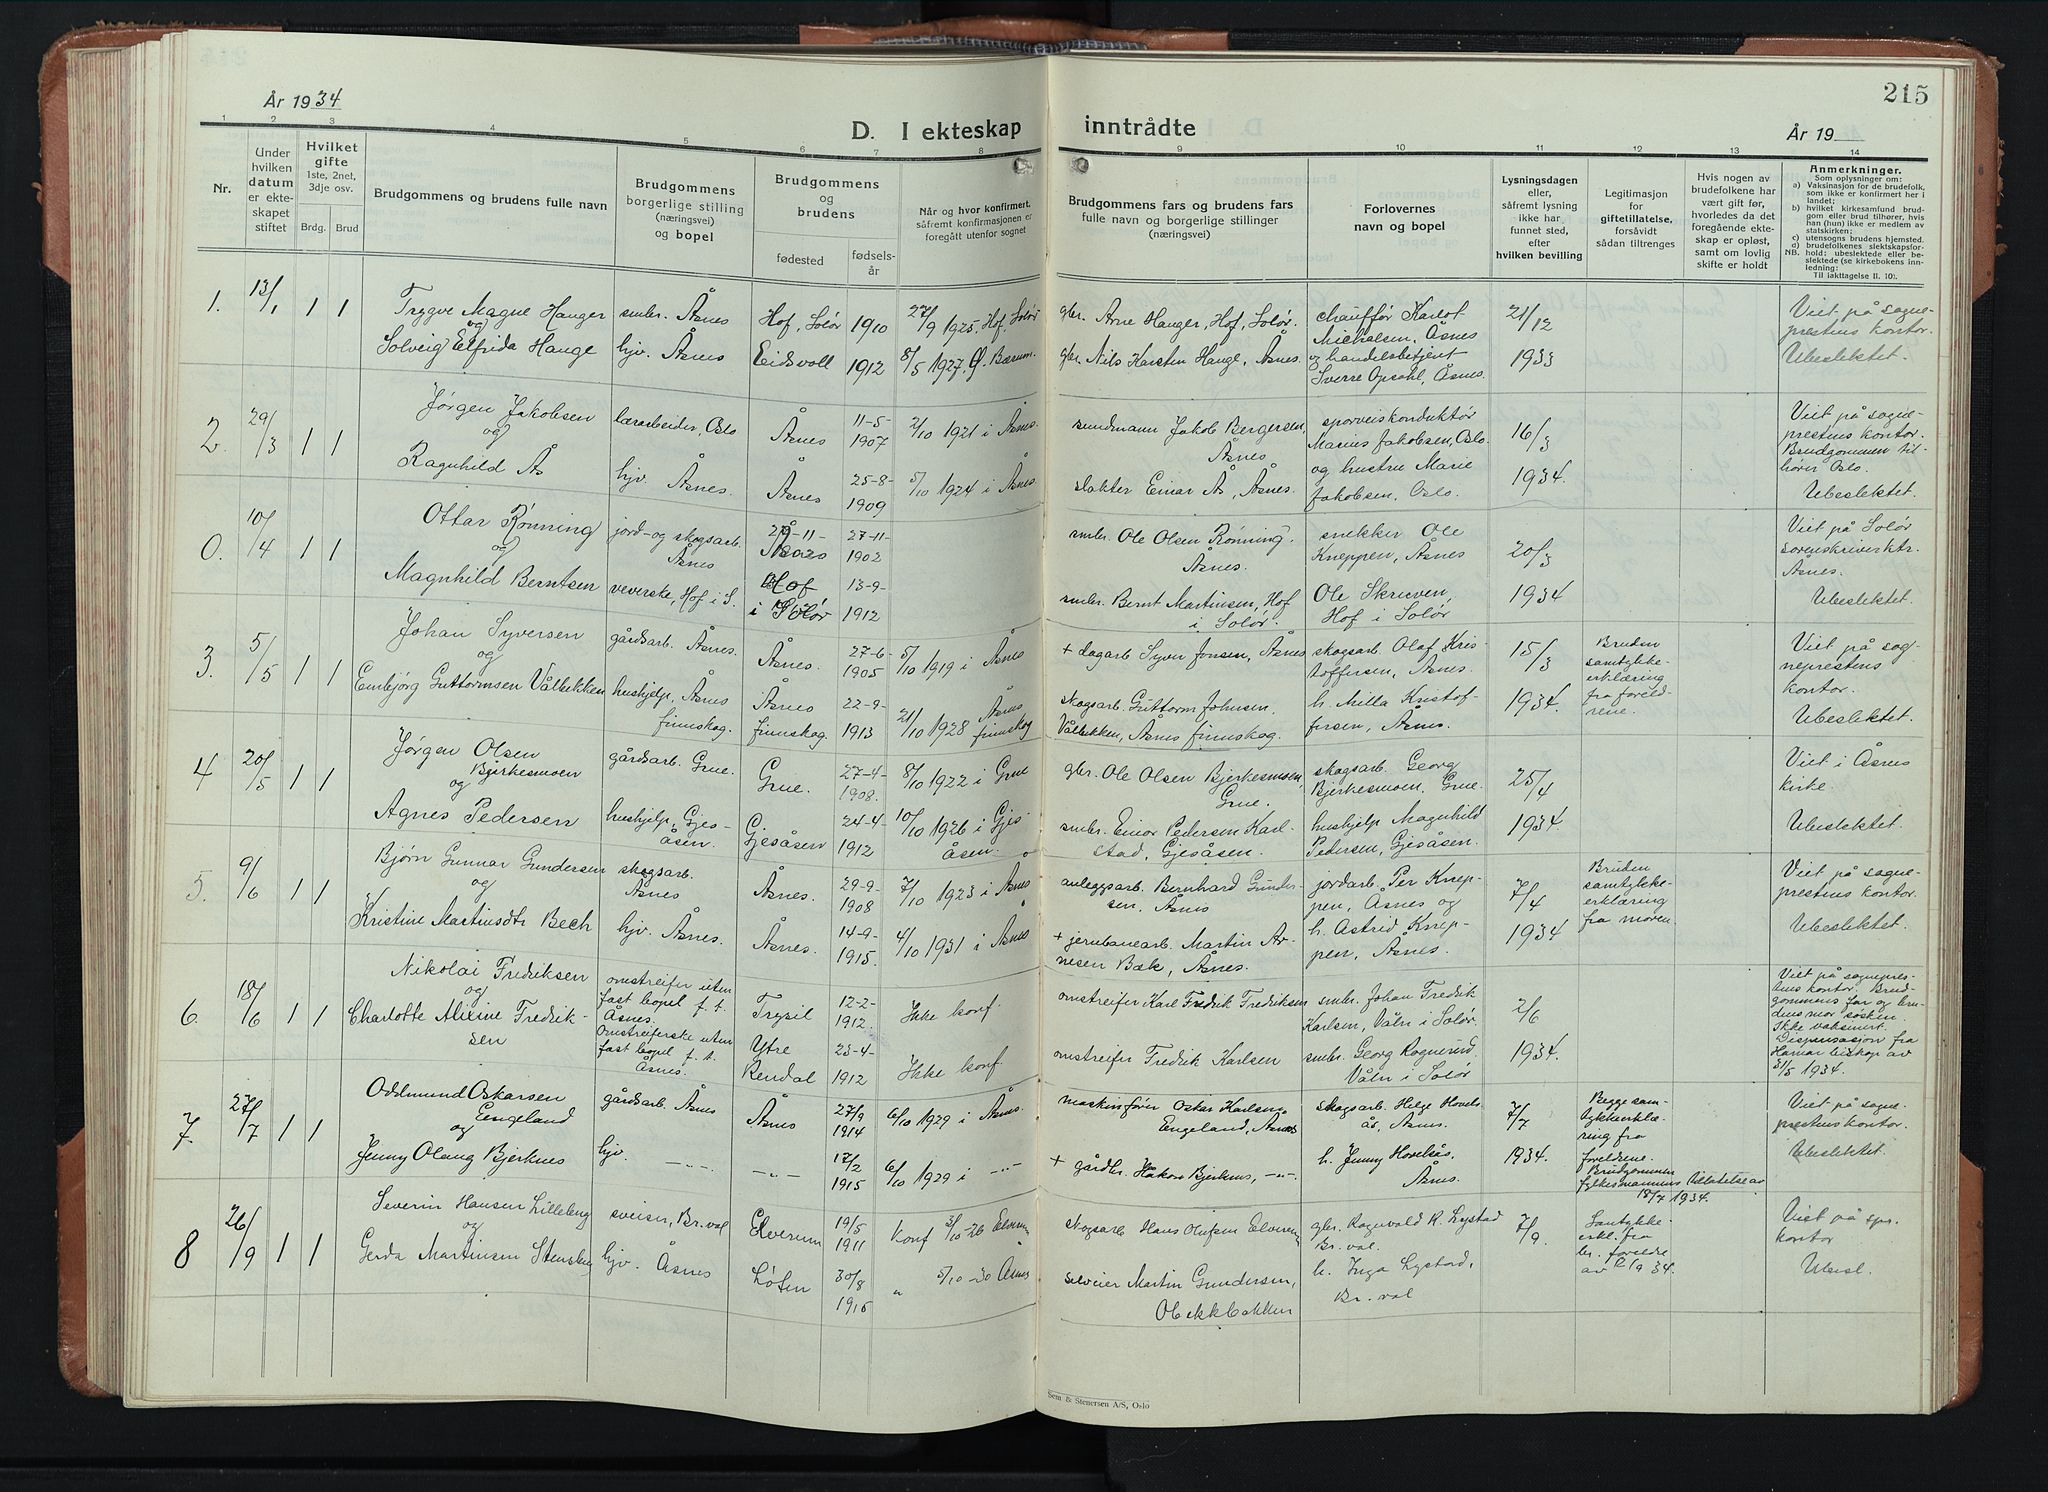 215
År 1934
D. I ekteskap
inntrådte
År 19
1 2 3 4 5 6 7 8 9 10 11 12 13 14
Nr.
Under
hvilken
datum
er ekte-
skapet
stiftet
Hvilket
gifte
1ste, 2net,
3dje osv.
Brdg. Brud
Brudgommens og brudens fulle navn
Brudgommens
borgerlige stilling
(næringsvei)
og bopel
Brudgommens
og
brudens
fødested
fødsels-
år
Når og hvor konfirmert,
såfremt konfirmasjonen er
foregått utenfor sognet
Brudgommens fars og brudens fars
fulle navn og borgerlige stillinger
(næringsvei)
Forlovernes
navn og bopel
Lysningsdagen
eller,
såfremt lysning
ikke har
funnet sted,
efter
hvilken bevilling
Legitimasjon
for
giftetillatelse,
forsåvidt
sådan tiltrenges
Hvis nogen av
brudefolkene har
vært gift før,
hvorledes da det
foregående ekte-
skap er opløst,
samt om lovlig
skifte er holdt
Anmerkninger.
Som oplysninger om:
a) Vaksinasjon for de brudefolk,
som ikke er konfirmert her i
landet;
b) hvilket kirkesamfund brud-
gom eller brud tilhører, hvis
han (hun) ikke er medlem av
statskirken;
c) utensogns brudens hjemsted.
d) brudefolkenes slektskapsfor-
NB. hold: ubeslektede eller be-
slektede (se kirkebokens inn-
ledning:
Til iakttagelse II. 10).
1. 13/1 1 1
Trygve Magne Hanger
og
Solveig Elfrida Hauge
smbr. Åsnes
hjv. Åsnes
Hof, Solør 1910
Eidsvoll 1912
27/9 1925. Hof, Solør
8/5 1927. Ø. Bærum.
gbr. Arne Hanger, Hof, Solør.
gbr. Nils Karsten Hauge, Åsnes.
chauffør Karlot
Michalsen, Åsnes
og handelsbetjent
Sverre Opsahl, Åsnes.
21/12
1933
Viet på sogne-
prestens kontor.
Ubeslektet.
2. 29/3 1 1
Jørgen Jakobsen
og
Ragnhild Ås
lærarbeider, Oslo
hjv. Åsnes.
Åsnes 11-5-
1907
Åsnes 25-8-
1909
2/10 1921 i Åsnes.
5/10 1924 i Åsnes.
sundmann Jakob Bergersen,
Åsnes
slakter Einar Ås, Åsnes.
sporveiskonduktør
Marius Jakobsen, Oslo.
og hustru Marie
Jakobsen, Oslo.
16/3
1934.
Viet på sogne-
prestens kontor.
Brudgommen til-
hører Oslo.
Ubeslektet.
0. 10/4 1 1
Ottar Rønning
og
Magnhild Berntsen
jord- og skogsarb.
Åsnes
veverske, Hof i S.
27-11-
1902
Hof
i Solør
13-9-
1912
smbr. Ole Olsen Rønning,
Åsnes.
smbr. Bernt Martinsen, Hof
i Solør.
snekker Ole
Kneppen, Åsnes
Ole Skrieven,
Hof i Solør
20/3
1934
Viet på Solør
sorenskriverktr.
Åsnes.
Ubeslektet.
3. 5/5 1 1
Johan Syversen
og
Embjørg Guttormsen Vålbekken
gårdsarb. Åsnes.
hushjelp, Åsnes
finnskog.
Åsnes. 27-6-
1905
Åsnes
finnskog.
22-9-
1913
5/10 1919 i Åsnes
21/10 1928 Åsnes
finnskog
+ dagarb. Syver Jonsen, Åsnes
skogsarb. Guttorm Johnsen
Vålbekken, Åsnes finnskog.
skogsarb. Olaf Kris-
toffersen, Åsnes.
h. Milla Kristof-
fersen, Åsnes.
15/3
1934.
Bruden
samtykke-
erklæring
fra foreld-
rene.
Viet på sog-
neprestens
kontor.
Ubeslektet.
4 20/5 1 1
Jørgen Olsen
Bjerkesmoen
og
Agnes Pedersen
gårdsarb. Grue.
hushjelp, Gjes-
åsen.
Grue. 27-4-
1908.
Gjesåsen 24-4-
1912
8/10 1922 i Grue
10/10 1926 i Gjes-
åsen.
gbr. Ole Olsen Bjerkesmoen,
Grue.
smbr. Einar Pedersen Karl-
stad, Gjesåsen.
skogsarb. Georg
Bjerkesmoen, Grue.
hushjelp Magnhild
Pedersen, Gjesåsen.
25/4
1934
Viet i Åsnes
kirke.
Ubeslektet.
5. 9/6 1 1
Bjørn Gunnar Gundersen
og
Kristine Martinsdtr Bech
skogsarb.
Åsnes
hjv. Åsnes.
Åsnes. 29-9-
1908
Åsnes. 14-9-
1915.
7/10 1923 i Åsnes
4/10 1931 i Åsnes
anleggsarb. Bernhard Gunder-
sen, Åsnes
+ jernbanearb. Martin Ar-
nesen Bæk, Åsnes.
jordarb. Per Knep-
pen, Åsnes og
h. Astrid Knep-
pen, Åsnes.
7/4
1934
Bruden
samtykke-
erklæring
fra moren.
Viet på sogne-
prestens kontor.
Ubeslektet.
6. 18/6 1 1
Nikolai Fredriksen
og
Charlotte Alixine Fredrik-
sen
omstreifer uten
fast bopel f. t.
Åsnes.
Omstreiferske uten
fast bopel f. t.
Åsnes.
Trysil 12-2-
1912.
Ytre
Rendal
23-4-
1912
Ikke konf.
Ikke konf.
omstreifer Karl Fredrik Fredriksen
omstreifer Fredrik Karlsen
smbr. Johan Fredrik
Karlsen, Våler i Solør.
smbr. Georg Rognerud,
Våler i Solør
2/6
1934.
Viet på sognepres-
tens kontor. Brud-
gommens far og bru-
dens mor søsken.
Ikke vaksinert.
Dispensasjon fra
Hamar biskop av
31/5 1934.
7. 27/7 1 1
Oddmund Oskarsen
Engeland
og
Jenny Olaug Bjerknes
gårdsarb. Åsnes
hjv. —"—
Åsnes 27/9
1914
—"— 17/2
1915
6/10 1929 i Åsnes.
6/10 1929 i —"—
maskinfører Oskar Karlsen
Engeland, Åsnes
+ gårdbr. Håkon Bjerknes, —"—
skogsarb. Helge Hovels-
ås, Åsnes.
h. Jenny Hovelsås,
Åsnes.
7/7
1934.
Begge sam-
tykkeerklæ-
ring fra
foreldrene.
Brudgommen
fylkesmannens tillatelse av
18/7 1934.
Viet på sogne-
prestens kontor.
Ubeslektet.
8 26/9 1 1
Severin Hansen Lilleberg
og
Gerda Martinsen Stensberg
sveiser, Br.val
hjv. Åsnes
Elverum 19/5
1911
Løten 30/8
1915
Konf 3/10-26 Elverum
" 5/10-30 Åsnes
skogsarb Hans Olufsen Elverum
sveier Martin Gundersen,
gbr. Ragnvald R. Lystad
Br. val.
h. Inga Lystad,
Br. val
7/9.
Samtykke-
erkl. fra
br. foreldre
av 34.
Viet på spr.
kontor
Ubesl.
Sem & Stenersen A/S, Oslo